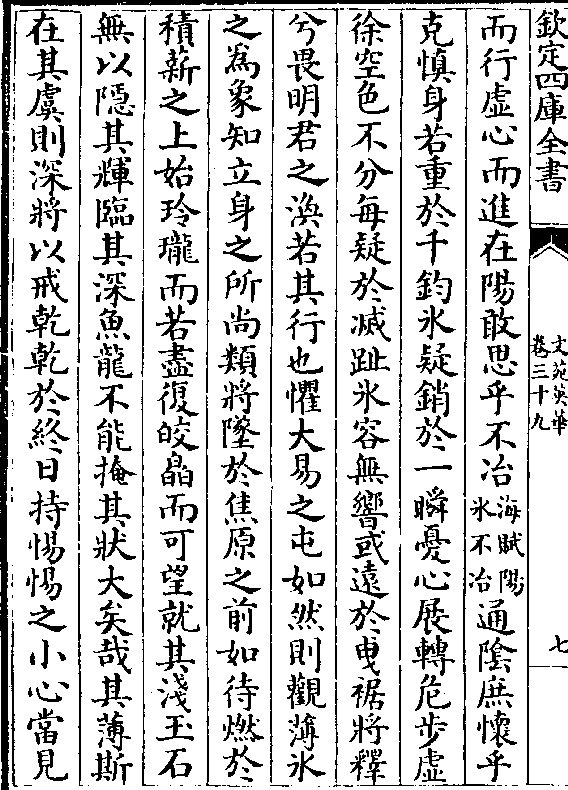 欽定四庫全書
文苑英華
卷三十九
七
而行虚心而進在陽敢思乎不冶海賦陽氷不冶通陰庶懷乎
克慎身若重於千鈞氷疑銷於一瞬憂心展轉危步虚
徐空色不分每疑於滅趾氷容無響或遠於曳裾將釋
兮畏明君之渙若其行也懼大易之屯如然則觀薄氷
之為象知立身之所尚類將墜於焦原之前如待燃於
積薪之上始玲瓏而若盡復皎晶而可望就其淺玉石
無以隱其輝臨其深魚龍不能掩其狀大矣哉其薄斯
在其虞則深將以戒乾乾於終日持惕惕之小心當見